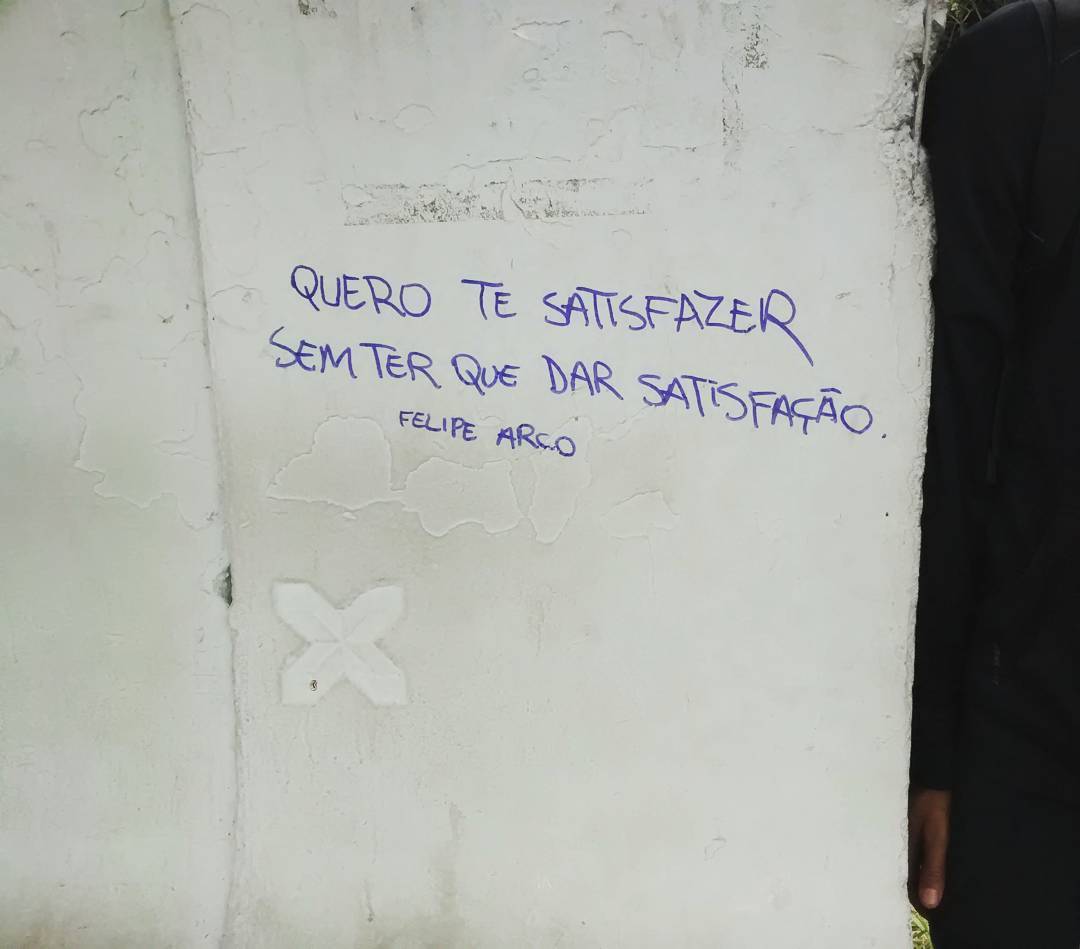 QUERO TE SATISFAZER
SEM TER QUE DAR SATISFAÇÃO.
FELIPE ARCO